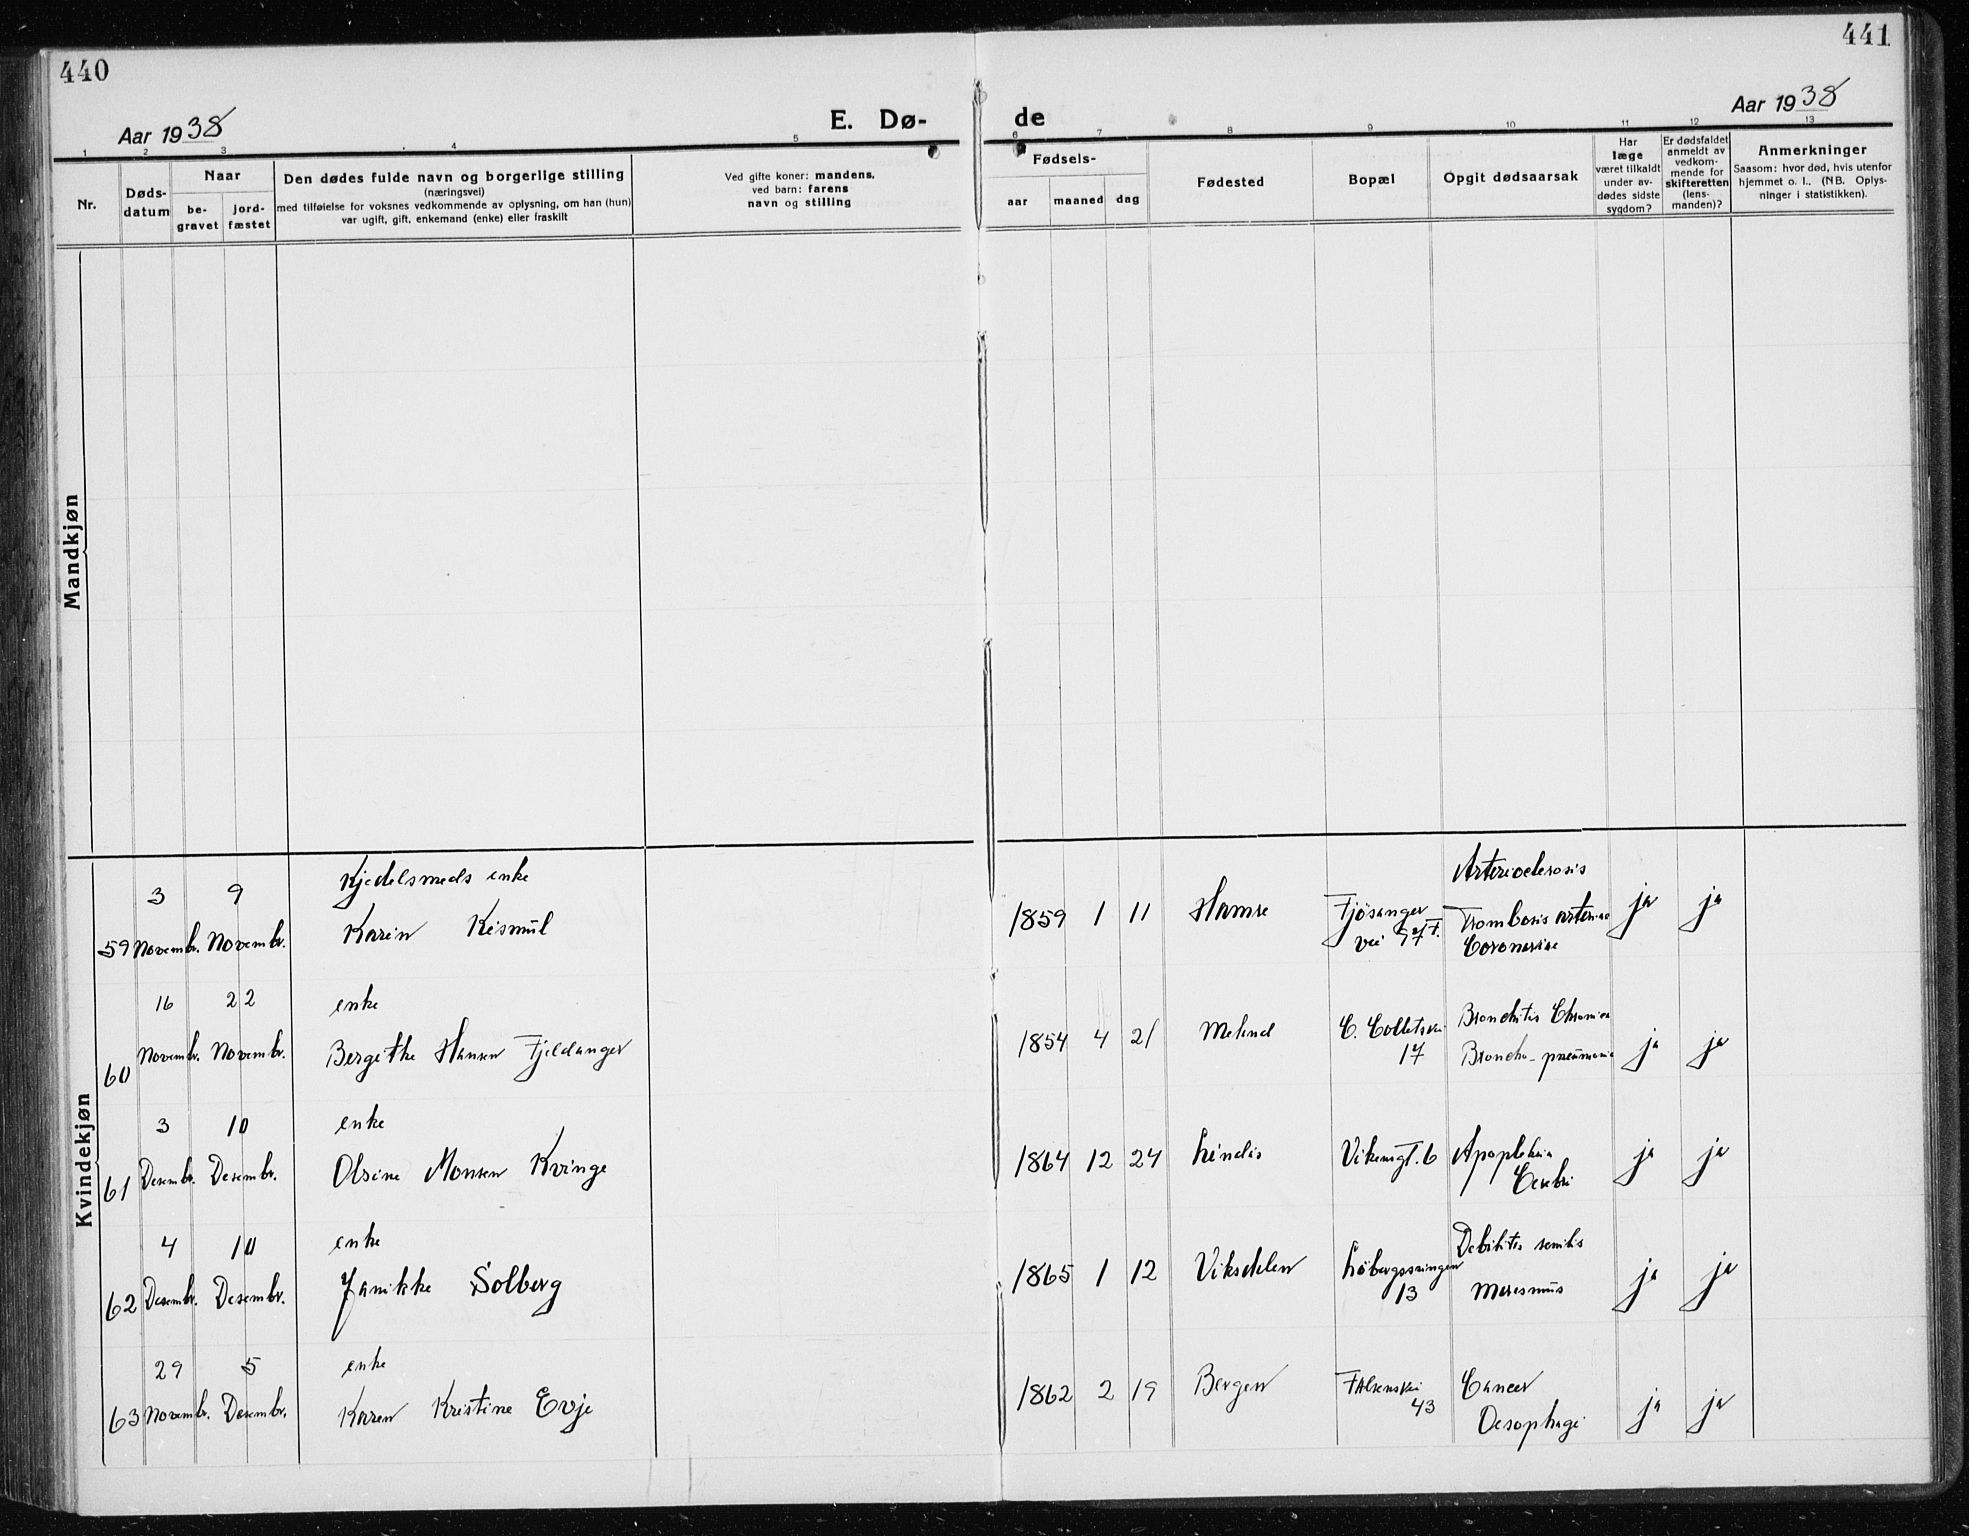 440
441
Aar 1938
E. Dø-
de
Aar 1938
1 2 3 4 5 6 7 8 9 10 11 12 13
Nr.
Døds-
datum
Naar
be-
gravet
jord-
fæstet
Den dødes fulde navn og borgerlige stilling
(næringsvei)
med tilføielse for voksnes vedkommende av oplysning, om han (hun)
var ugift, gift, enkemand (enke) eller fraskilt
Ved gifte koner: mandens,
ved barn: farens
navn og stilling
Fødsels-
aar
maaned
dag
Fødested
Bopæl
Opgit dødsaarsak
Har
læge
været tilkaldt
under av-
dødes sidste
sygdom?
Er dødsfaldet
anmeldt av
vedkom-
mende for
skifteretten
(lens-
manden)?
Anmerkninger
Saasom: hvor død, hvis utenfor
hjemmet o. l., (NB. Oplys-
ninger i statistikken).
Mandkjøn
Kvindekjøn
Kjedelsmeds enke
3 9
59 Novembr. Novembr. Karen Kismul
1859 1 11 Hamre
Fjøsanger
vei
Arteriosclerosis
Trombosis arteriae
Coronariae
ja ja
16 22 enke
60 Novembr. Novembr. Bergithe Hansen Fjeldanger
1854 4 21 Meland
C. Colletsvei
17
Bronchitis Chronica
Broncho-pneumonia
ja ja
3 10 enke
61 Desembr. Desembr. Olsine Monsen Kvinge
1864 12 24 Lindås
Vikensgt. 6
Apopleksia
Cerebri
ja ja
4 10 enke
62 Desembr. Desembr. Janikke Solberg
1865 1 12 Viksdalen
13
Debilitas senilis
Marasmus
ja ja
29 5 enke
63 Novembr. Desembr. Karen Kristine Evje
1862 2 19 Bergen
Falsensvei
43
Cancer
Oesophagi
ja ja